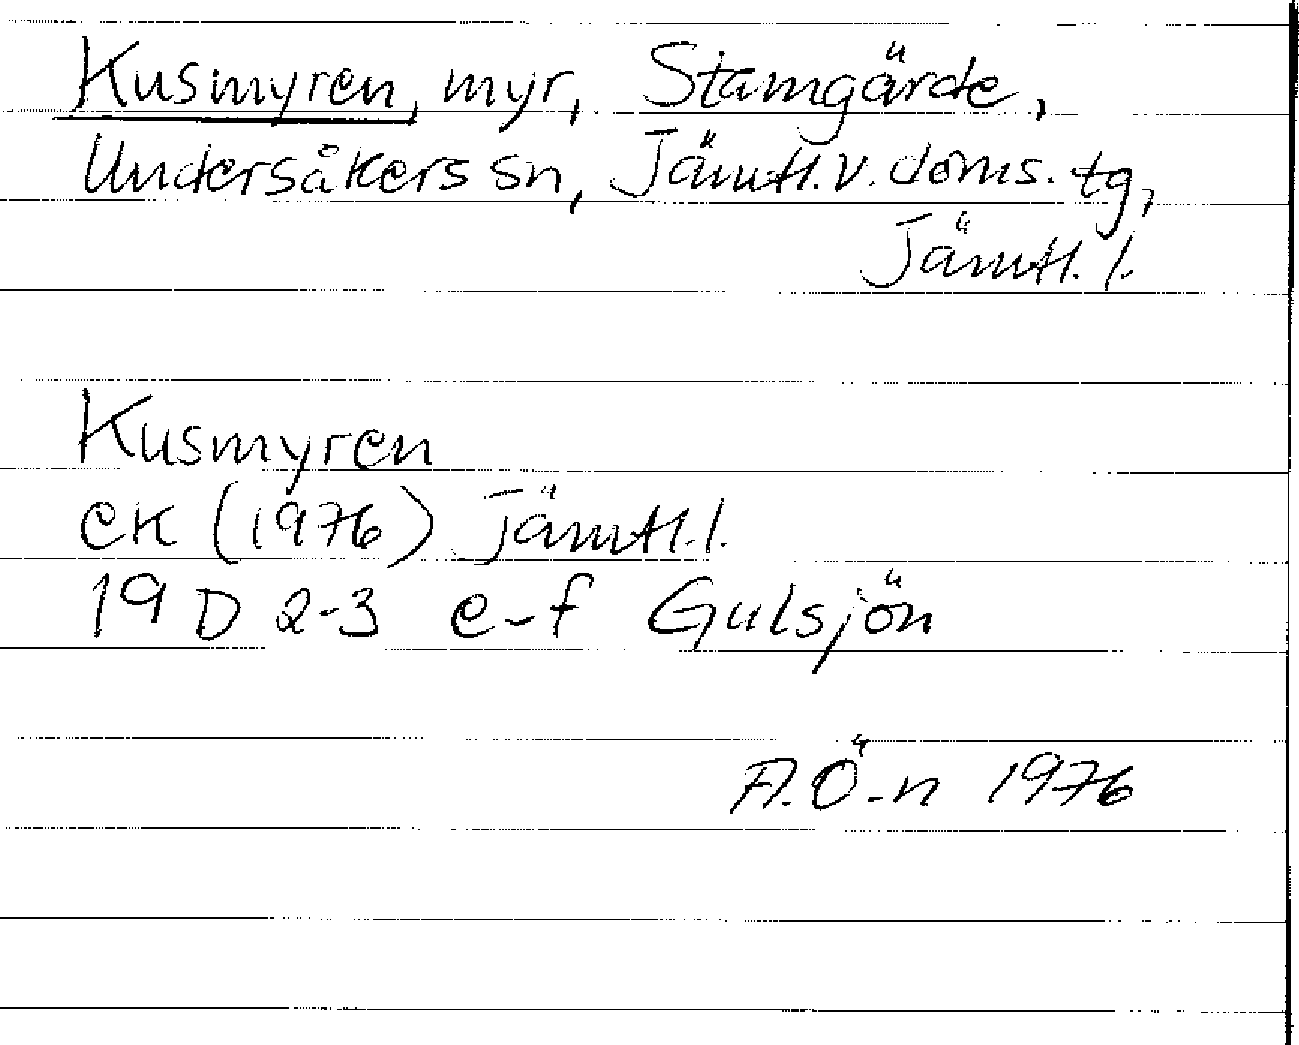 Kusmyren, myr, Stamgärde,
Undersåkers sn, Jämtl. v. doms. tg,
Jämtl. l.
Kusmyren
ek (1976) Jämtl. l.
19 D 2-3 e-f Gulsjön
A. Ö-n 1976